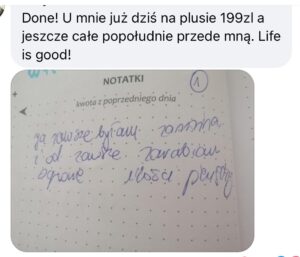 Done! U mnie już dziś na plusie 199zl a
jeszcze całe popołudnie przede mną. Life
is good!
NOTATKI
1
kwota z poprzedniego dnia
Ja zawsze byłam zamożna
i od zawsze zarabiam
ogromne ilości pieniędzy